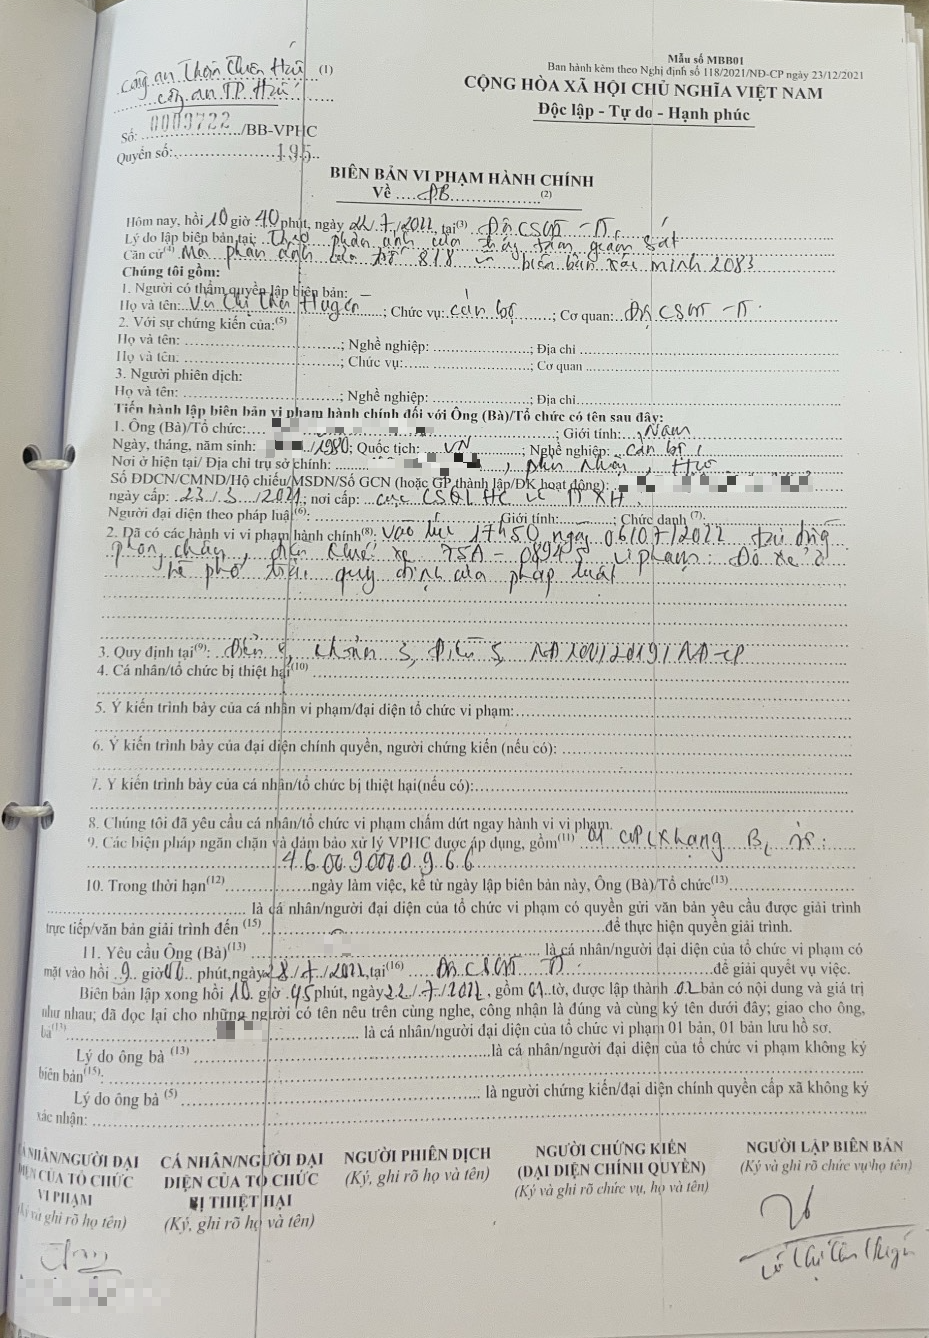 Mẫu số MBB01
Ban hành kèm theo Nghị định số 118/2021/NĐ-CP ngày 23/12/2021
(1)
Công an T.P Huế
CỘNG HÒA XÃ HỘI CHỦ NGHĨA VIỆT NAM
Độc lập - Tự do - Hạnh phúc
Số: 0003722/BB-VPHC
Quyển số: 195
BIÊN BẢN VI PHẠM HÀNH CHÍNH
Về ĐB (2)
Hôm nay, hồi 10 giờ 40 phút, ngày 22/7/2022, tại(3) Đội CSGT - TT
Lý do lập biên bản tại: Theo phản ánh của máy trạm giám sát
Căn cứ(4) Mã phản ánh 818 và biên bản xác minh 2083
Chúng tôi gồm:
1. Người có thẩm quyền lập biên bản:
Họ và tên: ; Chức vụ: cán bộ ; Cơ quan: Đội CSGT - TT
2. Với sự chứng kiến của:(5)
Họ và tên: ; Nghề nghiệp: ; Địa chỉ
Họ và tên: ; Chức vụ: ; Cơ quan
3. Người phiên dịch:
Họ và tên: ; Nghề nghiệp: ; Địa chỉ
Tiến hành lập biên bản vi phạm hành chính đối với Ông (Bà)/Tổ chức có tên sau đây:
1. Ông (Bà)/Tổ chức: ; Giới tính: Nam
Ngày, tháng, năm sinh: /1980; Quốc tịch: VN ; Nghề nghiệp: cán bộ
Nơi ở hiện tại/ Địa chỉ trụ sở chính: , Huế
Số ĐDCN/CMND/Hộ chiếu/MSDN/Số GCN (hoặc GP thành lập/ĐK hoạt động):
ngày cấp: 23/3/2021; nơi cấp: cục CSQLHC về TTXH
Người đại diện theo pháp luật(6): Giới tính: ; Chức danh (7):
2. Đã có các hành vi vi phạm hành chính(8): vào lúc 17h50 ngày 06/07/2022 tại đường
Phan Châu , điều khiển xe 75A - vi phạm: Đỗ xe ở
hè phố trái quy định của pháp luật
3. Quy định tại(9): Điểm , khoản 3, Điều 5, NĐ 100/2019/NĐ-CP
4. Cá nhân/tổ chức bị thiệt hại(10)
5. Ý kiến trình bày của cá nhân vi phạm/đại diện tổ chức vi phạm:
6. Ý kiến trình bày của đại diện chính quyền, người chứng kiến (nếu có):
7. Ý kiến trình bày của cá nhân/tổ chức bị thiệt hại(nếu có):
8. Chúng tôi đã yêu cầu cá nhân/tổ chức vi phạm chấm dứt ngay hành vi vi phạm.
9. Các biện pháp ngăn chặn và đảm bảo xử lý VPHC được áp dụng, gồm(11) 01 GPLX hạng B2 số:
460090000966
10. Trong thời hạn(12) ngày làm việc, kể từ ngày lập biên bản này, Ông (Bà)/Tổ chức(13)
là cá nhân/người đại diện của tổ chức vi phạm có quyền gửi văn bản yêu cầu được giải trình
trực tiếp/văn bản giải trình đến (15) để thực hiện quyền giải trình.
11. Yêu cầu Ông (Bà)(13) là cá nhân/người đại diện của tổ chức vi phạm có
mặt vào hồi 9 giờ 00 phút, ngày 28/7/2022, tại(16) Đội CSGT TT để giải quyết vụ việc.
Biên bản lập xong hồi 10 giờ 45 phút, ngày 22/7/2022, gồm 01 tờ, được lập thành 02 bản có nội dung và giá trị
như nhau; đã đọc lại cho những người có tên nêu trên cùng nghe, công nhận là đúng và cùng ký tên dưới đây; giao cho ông,
bà(13) là cá nhân/người đại diện của tổ chức vi phạm 01 bản, 01 bản lưu hồ sơ.
Lý do ông bà (13) là cá nhân/người đại diện của tổ chức vi phạm không ký
biên bản(15):
Lý do ông bà (5) là người chứng kiến/đại diện chính quyền cấp xã không ký
xác nhận:
CÁ NHÂN/NGƯỜI ĐẠI DIỆN CỦA TỔ CHỨC VI PHẠM
(Ký và ghi rõ họ tên)
CÁ NHÂN/NGƯỜI ĐẠI DIỆN CỦA TỔ CHỨC BỊ THIỆT HẠI
(Ký, ghi rõ họ và tên)
NGƯỜI PHIÊN DỊCH
(Ký, ghi rõ họ và tên)
NGƯỜI CHỨNG KIẾN
(ĐẠI DIỆN CHÍNH QUYỀN)
(Ký và ghi rõ chức vụ, họ và tên)
NGƯỜI LẬP BIÊN BẢN
(Ký và ghi rõ chức vụ họ tên)